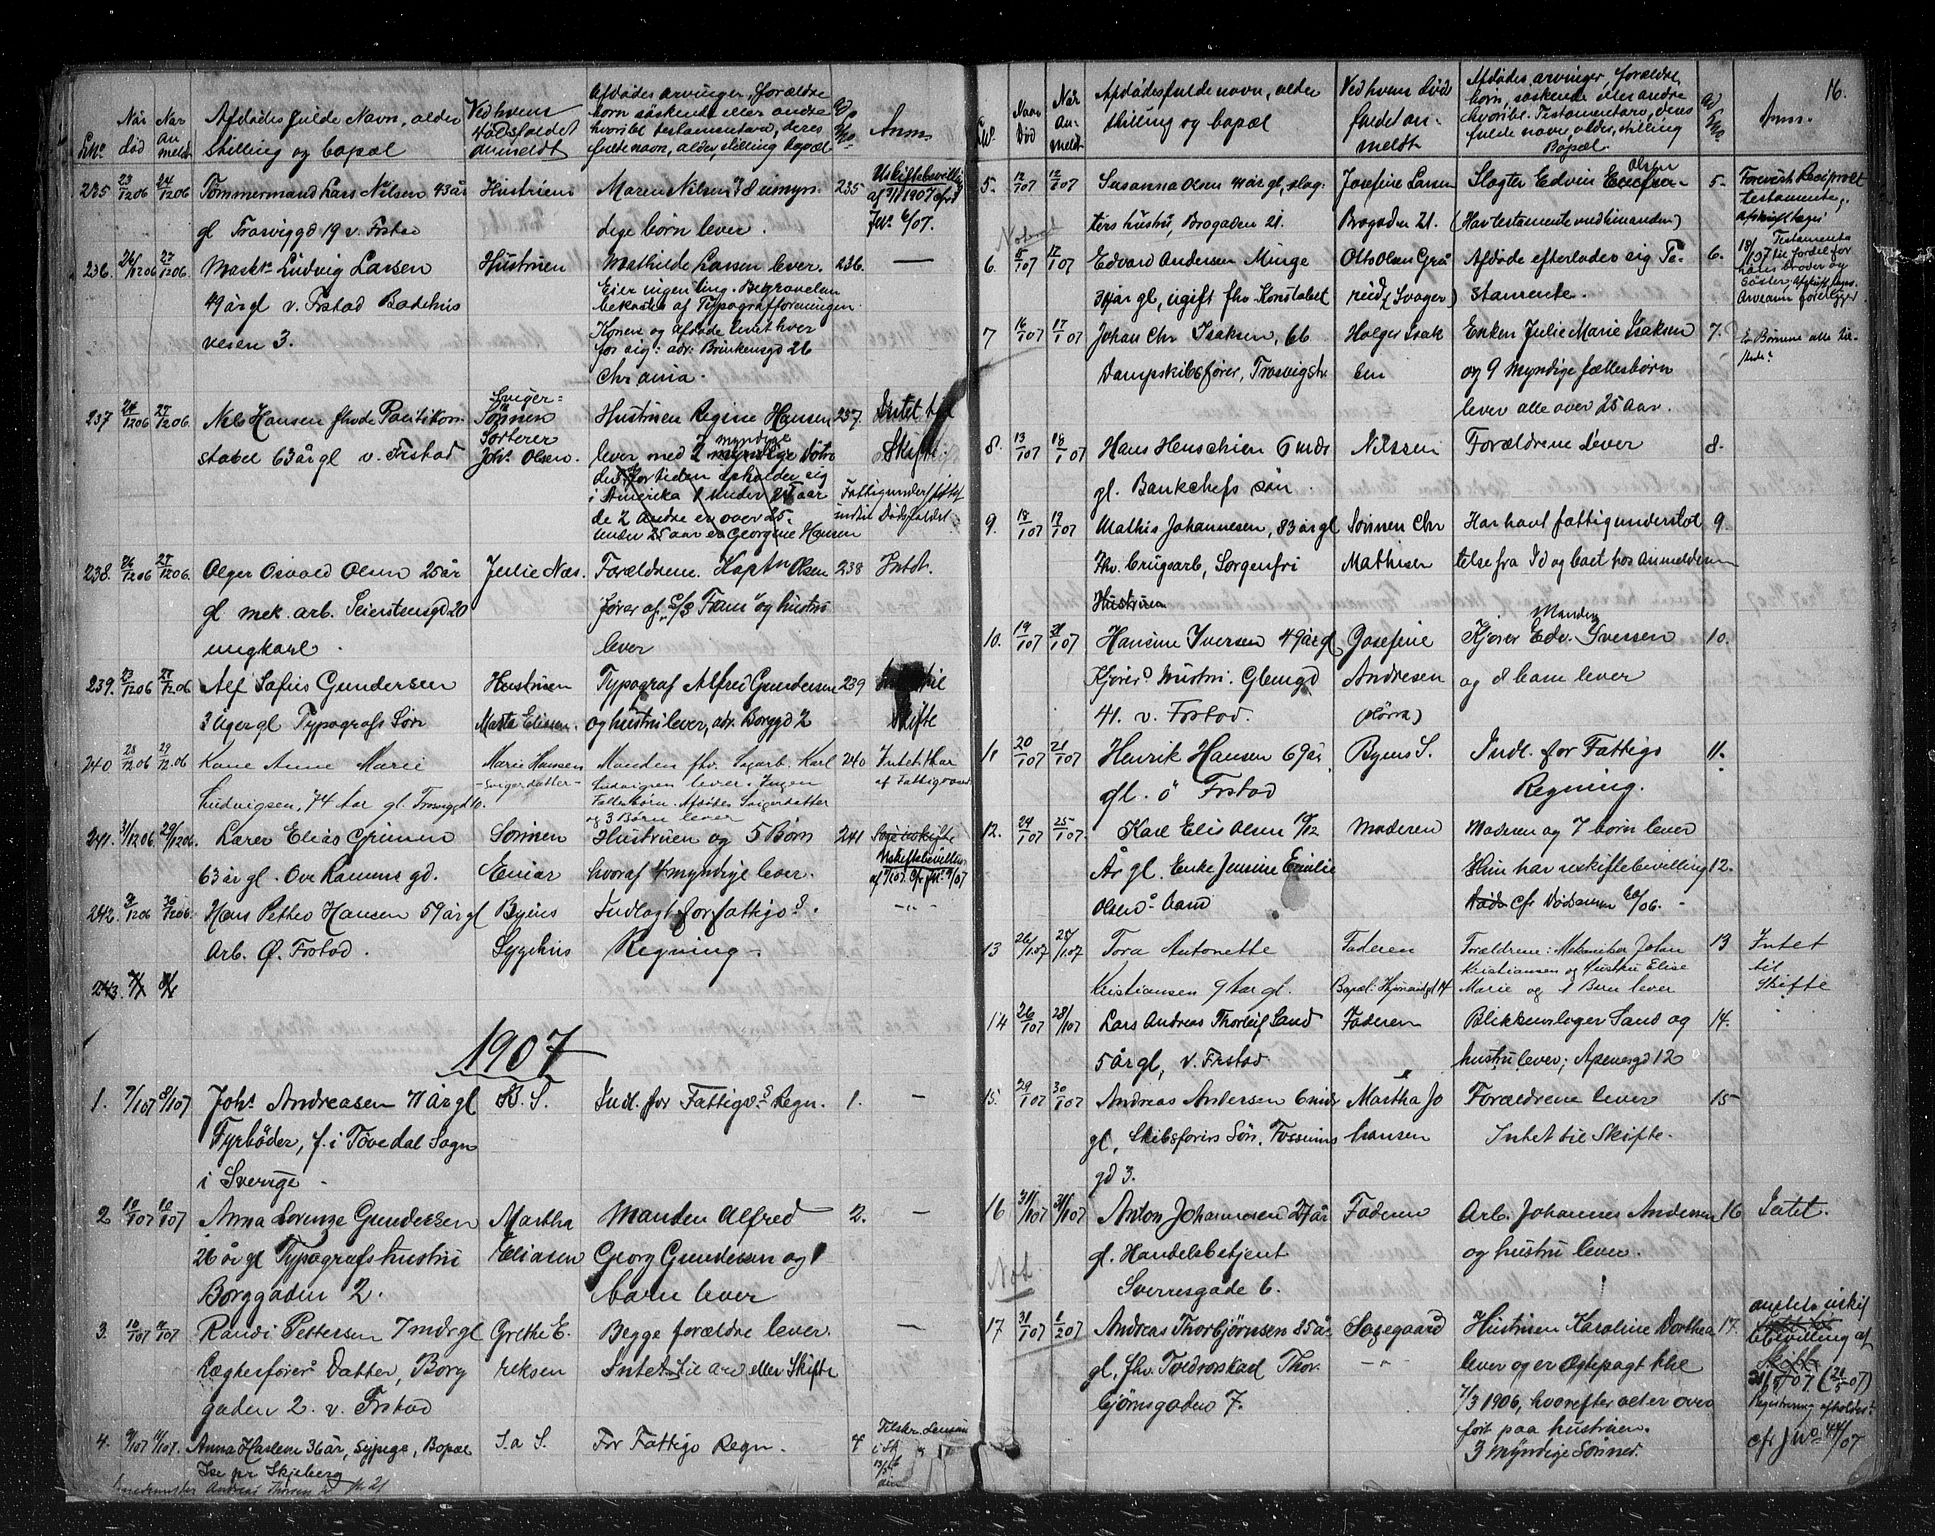 LNo
Når
død
Når
an
meldt
Afdødes fulde Navn, alder
stilling og bopæl
Ved hvem
dødsfaldet
anmeldt
Afdødes arvinger, forældre
børn søskende eller andre
hvoribl. testamentare, deres
fulde navn, alder, stilling bopæl
Anm
235 23/12 06 24/12 06 Tømmermand Lars Nilsen 43 år Hustruen Maren Nilsen 38 umyn- 235 Uskiftebevilling
gl Trosviggd 19 v. Frstad dige børn lever. af 1907
JNo. 6/07.
236. 26/12 06 27/12 06. Maskt Ludvig Larsen Hustruen Mathilde Larsen lever. 236. —
49 år gl v. Frstad Badehus Eier ingenting. Begravelsen
vesen 3. bekostes af Typografforeningen
Konen og Afdøde levet hver
for sig: adr. Brinkensgd 26
Chr ania.
237 26/12 06 27/12 06. Nels Hansen fhv Politikon- Sviger= Hustruen Regine Hansen 237. Intet til
stabel 63 år gl v. Frstad Sønnen lever med 2 myndige Skifte
Sorterer
Johs Olsen. for tiden opholder sig
i Amerika 1 under 25 aar Fattigunderstøttet
de 2 andre er over 25. indtil Dødsfaldet
under 25 aar er Georgine Hansen
238. 26/12 06 27/12 06. Olger Osvald Olsen 25 år Julie Næs. Forældrene. Kaptn Olsen 238 Intet.
gl mek. arb. Seierstensgd 20 fører af S/S "Fam" og hustru
ungkarl. lever
239. 23/12 06 27/12 06 Alf Sofus Gundersen Hustruen Typograf Alfred Gundersen 239 Intet til
3 uger gl Typografs Søn Marta Eliasen. og hustru lever, adr. Borggd 2 Skifte
240 28/12 06 29/12 06 Kone Anne Marie Marie Hansen Manden fhv. Sagarb. Karl 240 Intet. Har
Ludvigsen, 74 Aar gl. Trosviggd 10. -Svigerdatter- Ludvigsen lever. Ingen af Fattigvæs
Fællesbørn. Afdødes Svigerdatter
og 3 Børn lever
241. 31/12 06 29/12 06 Lærer Elias Grimm Sønnen Hustruen og 5 Børn 241
63 år gl. Ove Ramms gd. Einar hvoraf 4 myndige lever. Uskiftebevilling
242. 31/12 06 30/12 06 Hans Petter Hansen 59 år gl Byens Indlagt for fattigv. -"-
Arb. Ø. Frstad. Sygehus Regning.
243.
1907
1. 7/1 07 8/1 07 Johs Andreasen 71 år gl B. S. Indl. for Fattigvs Regn. 1. —
Fyrbøder, f. i Tøvedal Sogn
i Sverige
2 10/1 07 10/1 07 Anna Lorenze Gundersen Martha Manden Alfred 2. —
26 år gl Typografs hustru Eliasen Georg Gundersen og 1
Borggaden 2. barn lever
3. 10/1 07 11/1 07 Randi Pettersen 7 mdr gl Grethe E. Begge forældre lever. —
Lægterførers Datter, Borg reksen Intet til arv eller Skifte
gaden 2. v. Frstad
4. 9/1 07 11/1 07. Anna Haslem 36 år, Sypige, Bopæl S. a S. For Fattigv Regn. 4
Ise pr Skjeberg
16.
LNo.
Naar
Død
Når
an-
meldt
Afdødes fulde navn, alder
stilling og bopæl
Ved hvem død
faldet an-
meldt
Afdødes arvinger, forældre
børn, søskende eller andre
hvoribl. Testamentare, deres
fulde navn, alder, stilling
Bopæl
Anm.
5. 12/1 07 12/1 07 Susanna Olsen 41 år gl, slag- Josefine Larsen Slagter Edvin Olsen 5. Forevist Reciprokt
ters hustru, Brogaden 21. Brogaden 21. (Har testamente med hinanden) testamente,
afskrift tages
6. 8/1 07 12/1 07 Edvard Andersen Minge Otto Olsen Grå Afdøde efterlader sig Te- 6. Testamente
til fordel for
hans Broder og
Søster.
år gl, ugift fhv. Konstabel rud (Svager) stamente.
7 16/1 07 17/1 07 Johan Chr Isaksen, 66 Holger Isak Enken Julie Marie Isaksen 7. Er Børnene alle til-
stede?
Dampskibsfører, Trosvigstr sen og 9 Myndige fællesbørn
lever alle over 25 aar.
8. 13/1 07 18/1 07 Hans Henschien 6 mdr Nilssen Forældrene lever 8.
gl. Bankchefs søn.
9. 18/1 07 19/1 07 Mathis Johannesen, 83 år gl Sønnen Chr Har havt fattigunderstøt 9.
Fhv. Brugsarb, Sorgenfri Mathisen telse fra Id og boet hos anmelderen
Hustruen
10. 19/1 07 21/1 07 Hansine Iversen 49 år gl Josefine Kjører Edv. Iversen 10.
Manden
Kjørers Hustru. Glemgd Andresen og 8 barn lever
41. v. Frstad.
11 20/1 07 21/1 07 Henrik Hansen 69 år Byens S. Indl. for Fattigv 11.
gl. ø Frstad Regning.
12. 24/1 07 25/1 07 Karl Elis Olsen 10/12 Moderen Moderen og 7 børn lever
År gl. Enke Jensine Emilie Hun har uskiftebevilling 12.
Olsens barn cfr Dødsanm 60/06. -
13 26/1 07 28/1 07 Tora Antonette Faderen Forældrene: Mekaniker Johan 13 Intet
Kristiansen 9 Aar gl. Bopæl: 14 Kristiansen og Hustru Elise til
Marie og 1 Barn lever Skifte
14 26/1 07 28/1 07 Lars Andreas Thorleif Sand Faderen Blikkenslager Sand og 14.
5 år gl, v. Frstad hustru lever; Apenesgd 12
15. 29/1 07 30/1 07 Andreas Andersen 6 mdr Martha Jo Forældrene lever 15
gl, Skibsførers Søn, Fossums hansen Intet til Skifte.
gd 3.
16 31/1 07 31/1 07 Anton Johannesen 27 år Faderen Arb. Johannes Andersen 16. Intet.
gl. Handelsbetjent og hustru lever.
Sverresgade 6.
Not.
17 31/1 07 1/2 07 Andreas Thorbjørnsen 85 år Søgegaard Hustruen Karoline Dorthea 17.
gl, fhv. Tredreskarl Thor -"- lever og er Ægtepagt
bjørnsgaden 7. 7/3 1906, hvorefter alt er over
ført paa hustruen.
3 Myndige Sønner.
uskif
tebevilling af
31/5 07
Registrering afholdes
cfr JNo 44/07